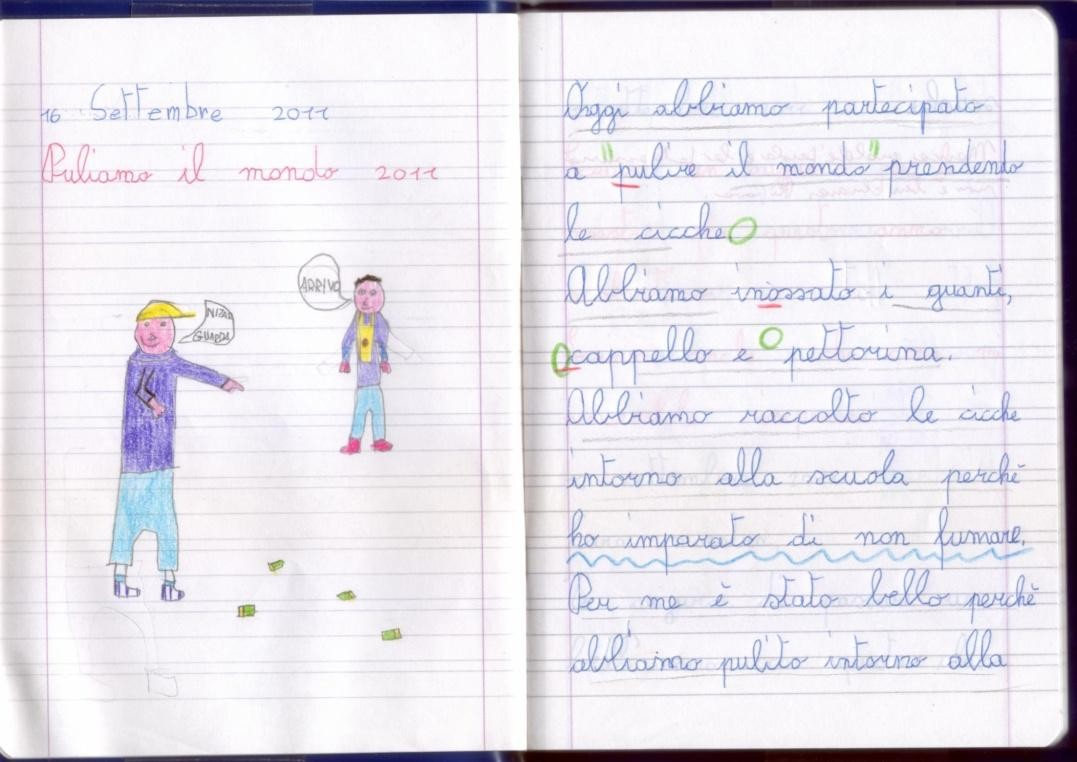 16 Settembre 2011
Puliamo il mondo 2011
ARRIVO
GUARDA
Oggi abbiamo partecipato
a "pulire il mondo" prendendo
le cicche
Abbiamo inossato i guanti,
cappello e pettorina.
Abbiamo raccolto le cicche
intorno alla scuola perchè
ho imparato di non fumare.
Per me è stato bello perchè
abbiamo pulito intorno alla